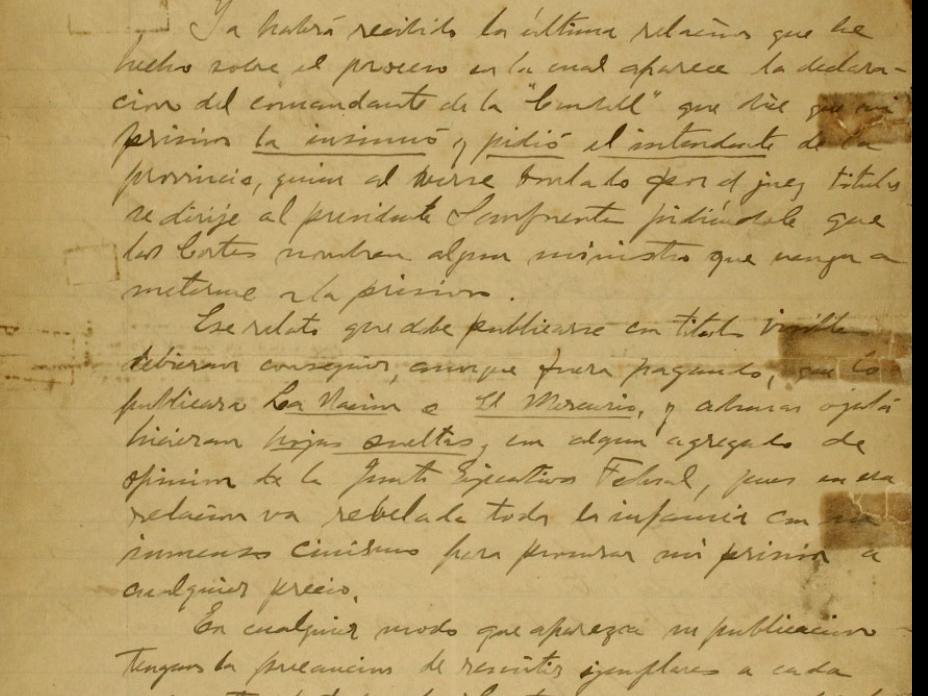 Ya habrá recibido la última relación que he
hecho sobre el proceso en la cual aparece la declara-
ción del comandante de la "Condell" que dice que mi
prisión la insinuó y pidió el intendente de la
provincia, quien al verse burlado por el juez titular
se dirije al presidente Sanfuentes pidiéndole que
las Cortes nombren algun ministro que venga a
meterme a la prision.
Ese relato que debe publicarse con titulo visible
debieran conseguir, aunque fuera pagando, que lo
publicara La Nacion o El Mercurio, y ademas ojalá
hicieran hojas sueltas, con algun agregado de
opinion de la Junta Ejecutiva Federal, pues en esa
relacion va rebelada toda la infamia con un
inmenso cinismo para procurar mi prision a
cualquier precio.
En cualquier modo que aparezca su publicacion
tengan la precaucion de remitir ejemplares a cada